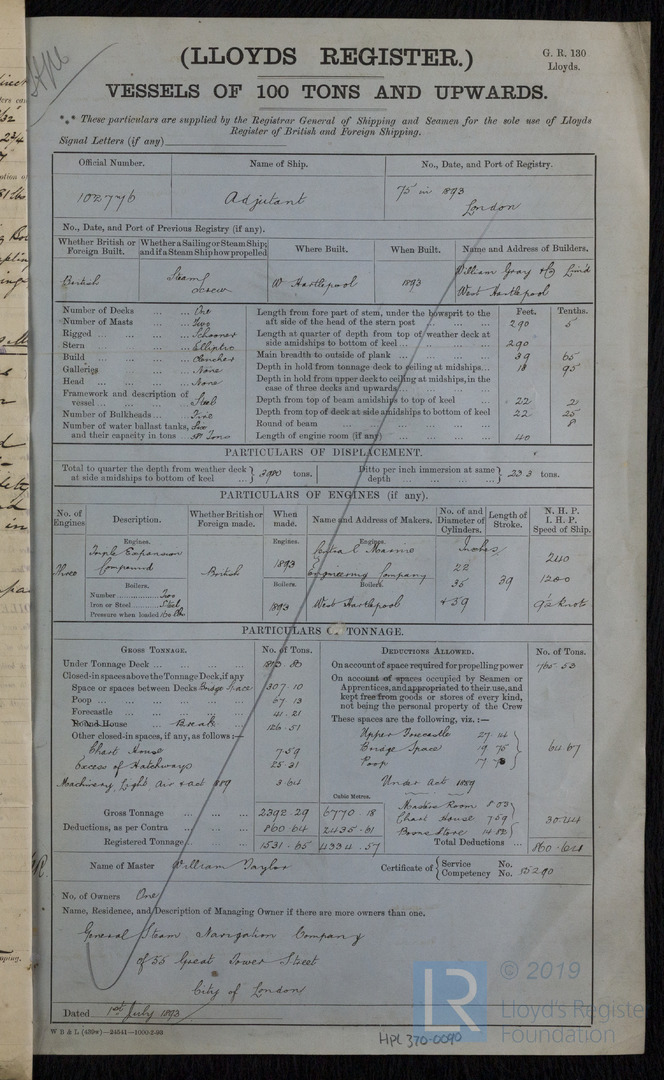 (LLOYDS REGISTER.)
G. R. 130
Lloyds.
VESSELS OF 100 TONS AND UPWARDS.
*** These particulars are supplied by the Registrar General of Shipping and Seamen for the sole use of Lloyds
Register of British and Foreign Shipping.
Signal Letters (if any)
Official Number. Name of Ship. No., Date, and Port of Registry.
102776 Adjutant 75 in 1893
London
No., Date, and Port of Previous Registry (if any).
Whether British or Foreign Built. Whether a Sailing or Steam Ship; and if a Steam Ship how propelled Where Built. When Built. Name and Address of Builders.
British Steam Screw W Hartlepool 1893 William Gray & Co Lim'd
West Hartlepool
Number of Decks ... One
Number of Masts ... Two
Rigged ... Schooner
Stern ... Elliptic
Build ... Clencher
Galleries ... None
Head ... None
Framework and description of vessel ... Steel
Number of Bulkheads ... Five
Number of water ballast tanks, and their capacity in tons ... Tons
Feet. Tenths.
Length from fore part of stem, under the bowsprit to the aft side of the head of the stern post 290 5
Length at quarter of depth from top of weather deck at side amidships to bottom of keel 290
Main breadth to outside of plank 39 65
Depth in hold from tonnage deck to ceiling at midships 18 95
Depth in hold from upper deck to ceiling at midships, in the case of three decks and upwards
Depth from top of beam amidships to top of keel 22 2
Depth from top of deck at side amidships to bottom of keel 22 25
Round of beam 8
Length of engine room (if any) 40
PARTICULARS OF DISPLACEMENT.
Total to quarter the depth from weather deck at side amidships to bottom of keel tons. Ditto per inch immersion at same depth 23 3 tons.
PARTICULARS OF ENGINES (if any).
No. of Engines Description. Whether British or Foreign made. When made. Name and Address of Makers. No. of and Diameter of Cylinders. Length of Stroke. N. H. P. I. H. P. Speed of Ship.
Engines. Engines. Engines.
Three Triple Expansion Compound British 1893 Central Marine Engineering Company Inches 22 35 & 59 39 240 1200 9½ Knots
Boilers. Boilers. Boilers.
Number Two
Iron or Steel Steel
Pressure when loaded 160 lbs
1893 West Hartlepool
PARTICULARS OF TONNAGE.
GROSS TONNAGE. No. of Tons. DEDUCTIONS ALLOWED. No. of Tons.
Under Tonnage Deck 1813 80
Closed-in spaces above the Tonnage Deck, if any
Space or spaces between Decks Bridge Space 307.10
Poop 67 13
Forecastle 41.21
Round House Break 126.51
Other closed-in spaces, if any, as follows:—
Chart House 7.59
Excess of Hatchways 25.31
Machinery, Light, Air & act 1889 3.64
On account of space required for propelling power 765 53
On account of spaces occupied by Seamen or Apprentices, and appropriated to their use, and kept free from goods or stores of every kind, not being the personal property of the Crew
These spaces are the following, viz.:—
Upper Forecastle 27 14
Bridge Space 19 75
Poop 17 78
64 67
Under Act 1889
Masters Room 8 03
Chart House 7 59
Boatns Store 14 82
30.44
Cubic Metres.
Gross Tonnage 2392.29 6770.18
Deductions, as per Contra 860.64 2435.61
Registered Tonnage 1531.65 4334.57
Total Deductions 860.64
Name of Master William Taylor Certificate of Service No.
Competency No.
No. of Owners One
Name, Residence, and Description of Managing Owner if there are more owners than one.
General Steam Navigation Company
of 55 Great Tower Street
City of London
Dated 1st July 1893
W B & L (439w)—24541—1000-2-93
HPL 370-0090
LR © 2019
Lloyd's Register
Foundation